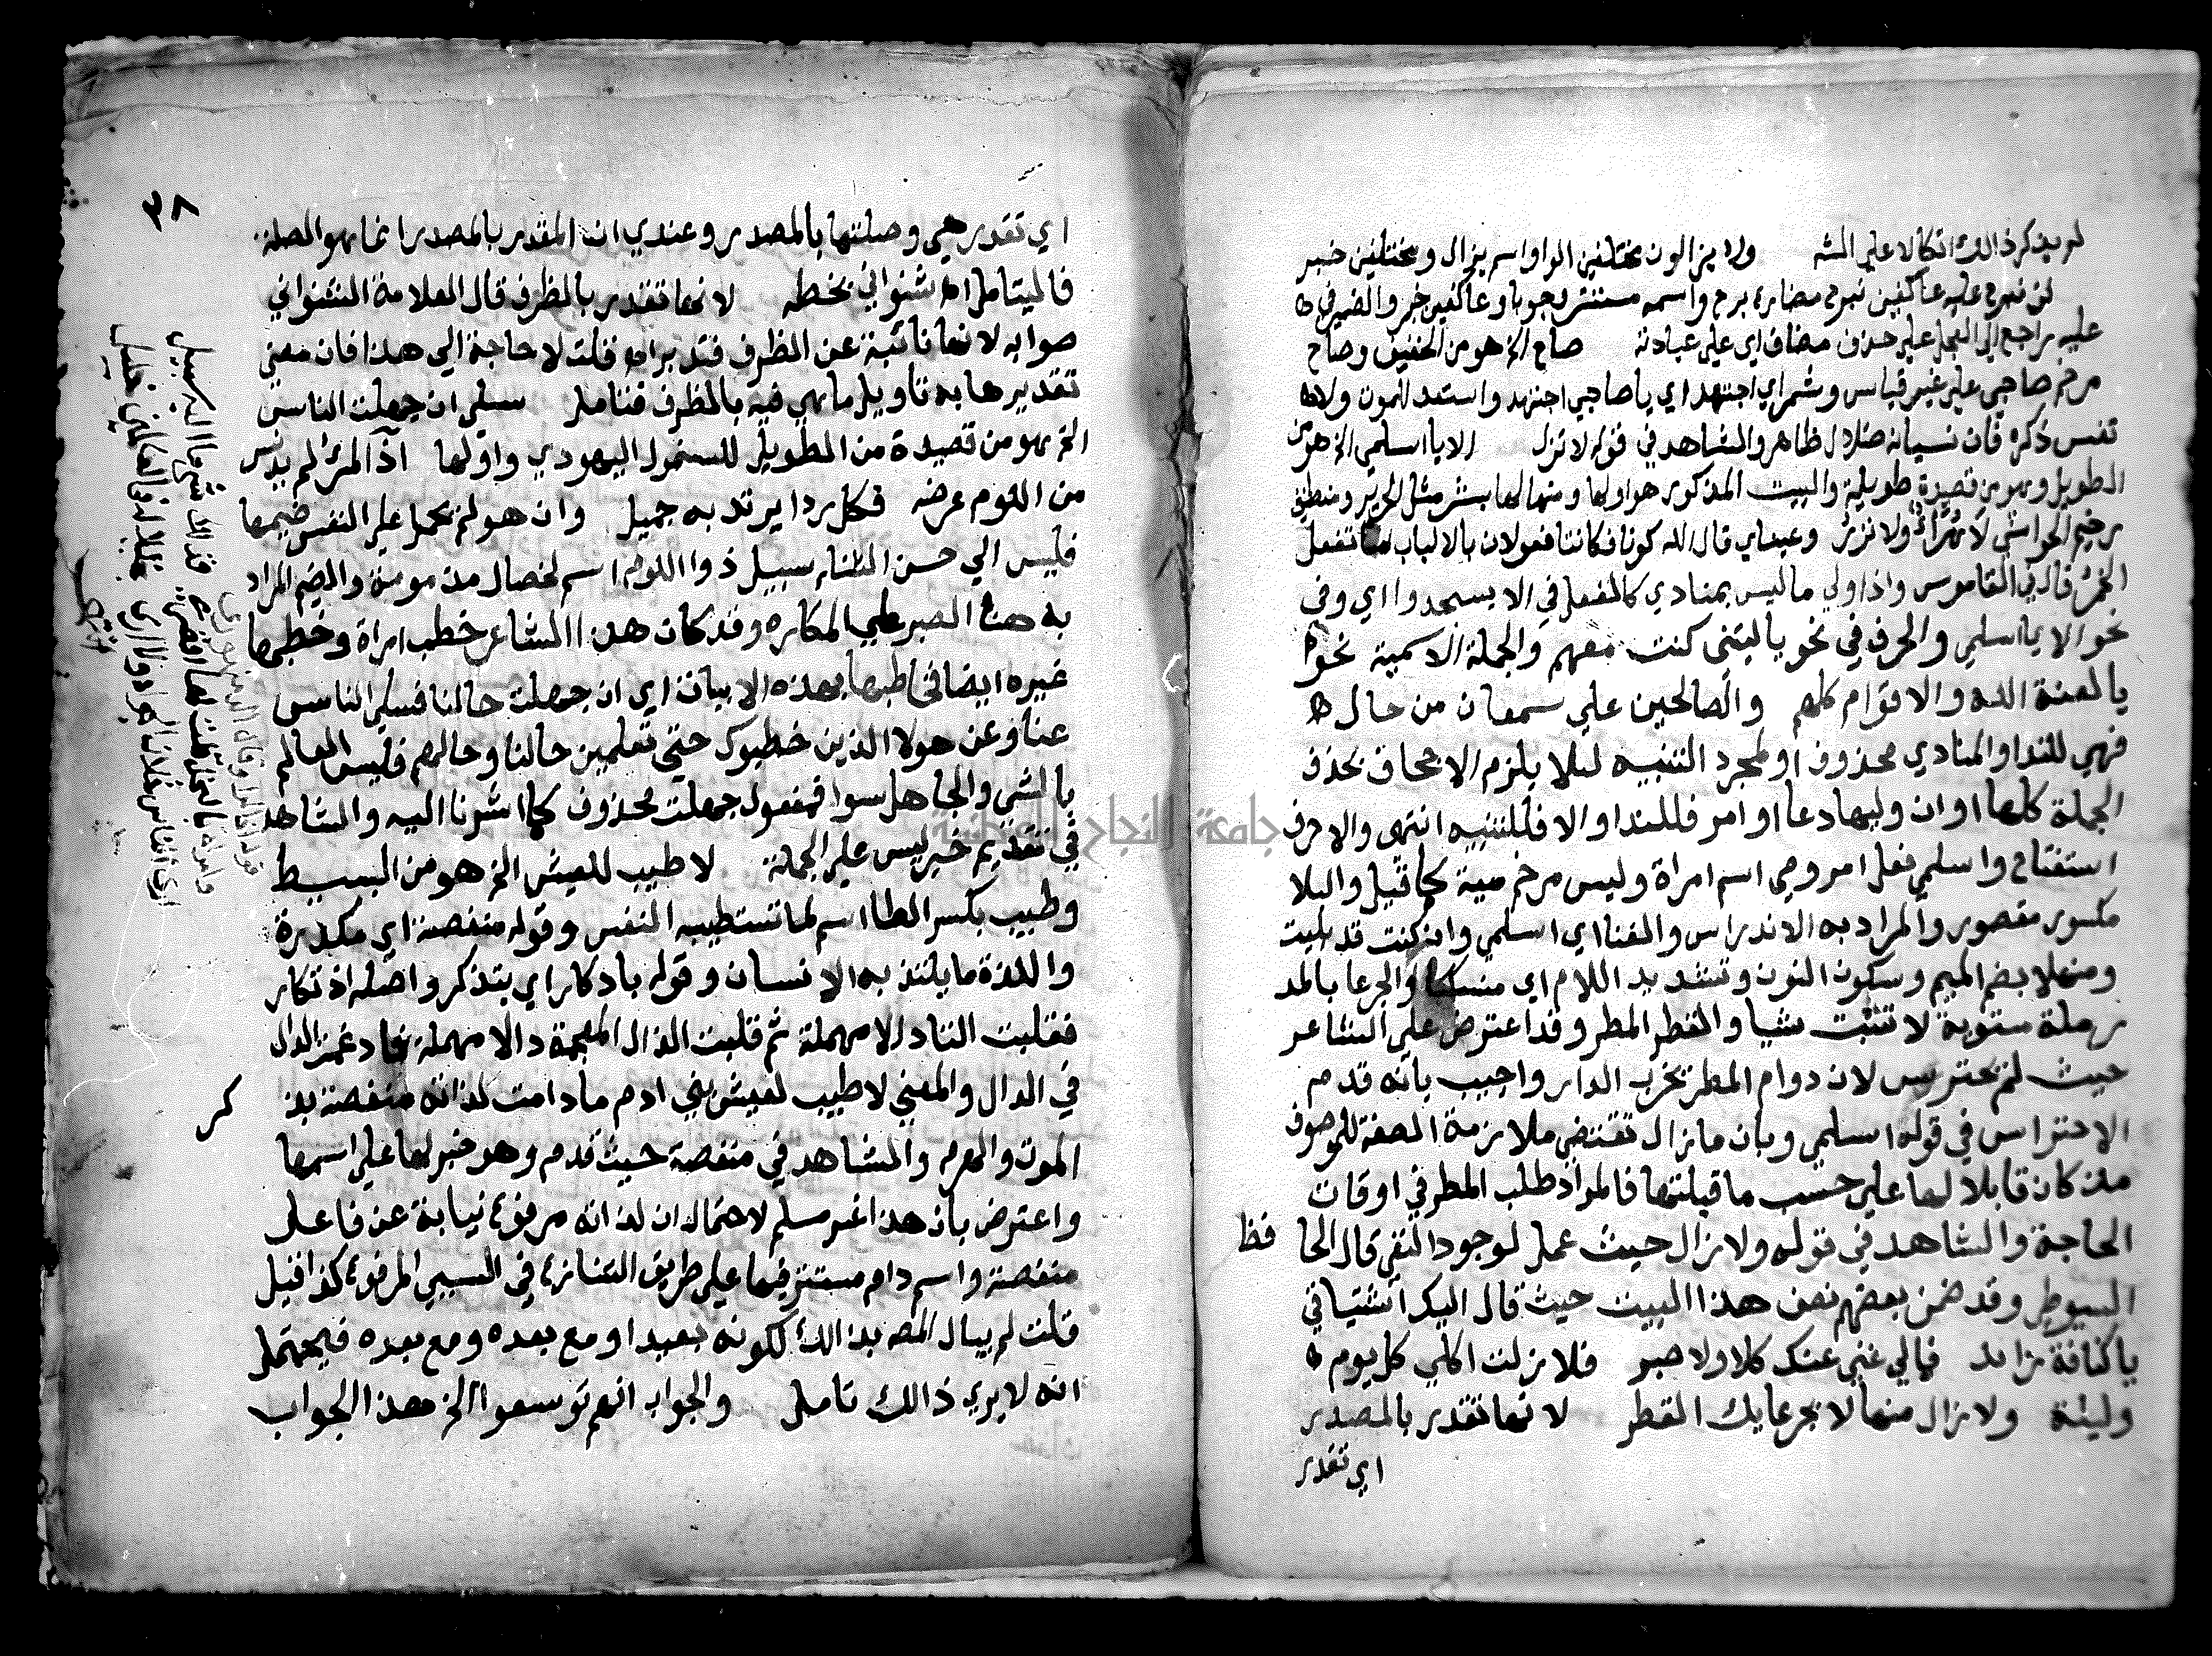 لم يذكر ذالك اتكالا علي الشه ولا يزالون مختلفين الواو اسم يزال ومختلفين خبر
لن نبرح عليه عاكفين نبرح مضارع برح واسمه مستتر وجوبا وعاكفين خبر والضمير في
عليه راجع الي العجل علي حذف مضاف اي علي عبادته صاح الخ هو من الخفيف وصاح
مرخم صاحبي علي غير قياس وشمر اي اجتهد اي يا صاحبي اجتهد واستعد للموت ولا
تنس ذكره فان نسيانه ضلال ظاهر والشاهد في قوله لا تزل الا يا اسلمي الخ هو من
الطويل وهو من قصيدة طويلة والبيت المذكور هو اولها ومنها لها بشر مثل الحرير ومنطق
رخيم الحواشي لا هراء ولا نزر وعينان قال الله كونا فكانتا فعولان بالالباب ما تفعل
الخمر قال في القاموس واذا ولي ما ليس بمنادي كالفعل في الا يسجدوا اي وفي
نحو الا يا اسلمي والحرف في نحو يا ليتني كنت معهم والجملة الاسمية نحو
يا لعنة الله والاقوام كلهم والصالحين علي سمعان من جار
فهي للندا والمنادي محذوف او لمجرد التنبيه ليلا يلزم الاجحاف بحذف
الجملة كلها او ان وليها دعا او امر فللندا والا فللتنبيه انتهي والا حرف
استفتاح واسلمي فعل امر ومي اسم امراة وليس مرخم مية كما قيل والبلا
مكسور مقصور والمراد به الاندراس والفنا اي اسلمي وان كنت قد بليت
ومنهلا بضم الميم وسكون النون وتشديد اللام اي منسكبا والجرعا بالمد
رملة مستوية لا تنبت شيا والقطر المطر وقد اعترض علي الشاعر
حيث لم يحترس لان دوام المطر يخرب الدار واجيب بانه قدم
الاحتراس في قوله اسلمي وبان ما زال تقتضي ملازمة الصفة للموصوف
مذ كان قابلا لها علي حسب ما قبلتها فالمراد طلب المطر في اوقات
الحاجة والشاهد في قوله ولا زال حيث عمل لوجود النفي قال الحا فظ
السيوطي وقد ضمن بعضهم نصف هذا البيت حيث قال اليك اشتياقي
يا كنافة زايد فمالي غني عنك كلا ولا صبر فلا زلت اكلي كل يوم
وليلة ولا زال منهلا بجرعايك القطر لانها تقدر بالمصدر
اي تقدر
٣٨
اي تقدر هي وصلتها بالمصدر وعندي ان المقدر بالمصدر انما هو الصلة
فاليتامل اه شنواني بخطه لانها تقدر بالظرف قال العلامة الشنواني
صوابه لانها نائبة عن الظرف فتدبر اه قلت لا حاجة الي هذا فان معني
تقديرها به تاويل ما هي فيه بالظرف فتامل سلي ان جهلت الناس
الخ هو من قصيدة من الطويل للسموال اليهودي واولها اذ المرئ لم يدنس
من اللوم عرضه فكل ردا يرتديه جميل وان هو لم يحمل علي النفس ضيمها
فليس الي حسن الثناء سبيل ذوا اللوم اسم لخصال مذمومة والضيم المراد
به هنا الصبر علي المكاره وقد كان هذا الشاعر خطب امراة وخطبها
غيره ايضا فخاطبها بهذه الابيات اي ان جهلت حالنا فسلي الناس
عنا وعن هولا الذين خطبوك حتي تعلمين حالنا وحالهم فليس العالم
بالشي والجاهل سوا فمفعول جهلت محذوف كما اشرنا اليه والشاهد
في تقديم خبر ليس علي الجملة لا طيب للعيش الخ هو من البسيط
وطيب بكسر الطا اسم لما تستطيبه النفس وقوله منغصة اي مكدرة
واللذة ما يلتذ به الانسان وقوله بادكار اي بتذكر واصله اذتكار
فقلبت التا دالا مهملة ثم قلبت الذال المعجمة دالا مهملة فادغمت الدال
في الدال والمعني لا طيب لعيش بني ادم ما دامت لذاته منغصة بذ كر
الموت والهرم والشاهد في منغصة حيث قدم وهو خبر لها علي اسمها
واعترض بان هذا غير مسلم لاحتمال ان لذاته مرفوع نيابة عن فاعل
منغصة واسم دام مستتر فيها علي طريق التنازع في السببي المرفوع كذا قيل
قلت لم يبال المصه بذالك لكونه بعيدا ومع بعده ومع بعده فيحتمل
انه لا يري ذالك تامل والجواب انهم توسعوا الخ هذا الجواب